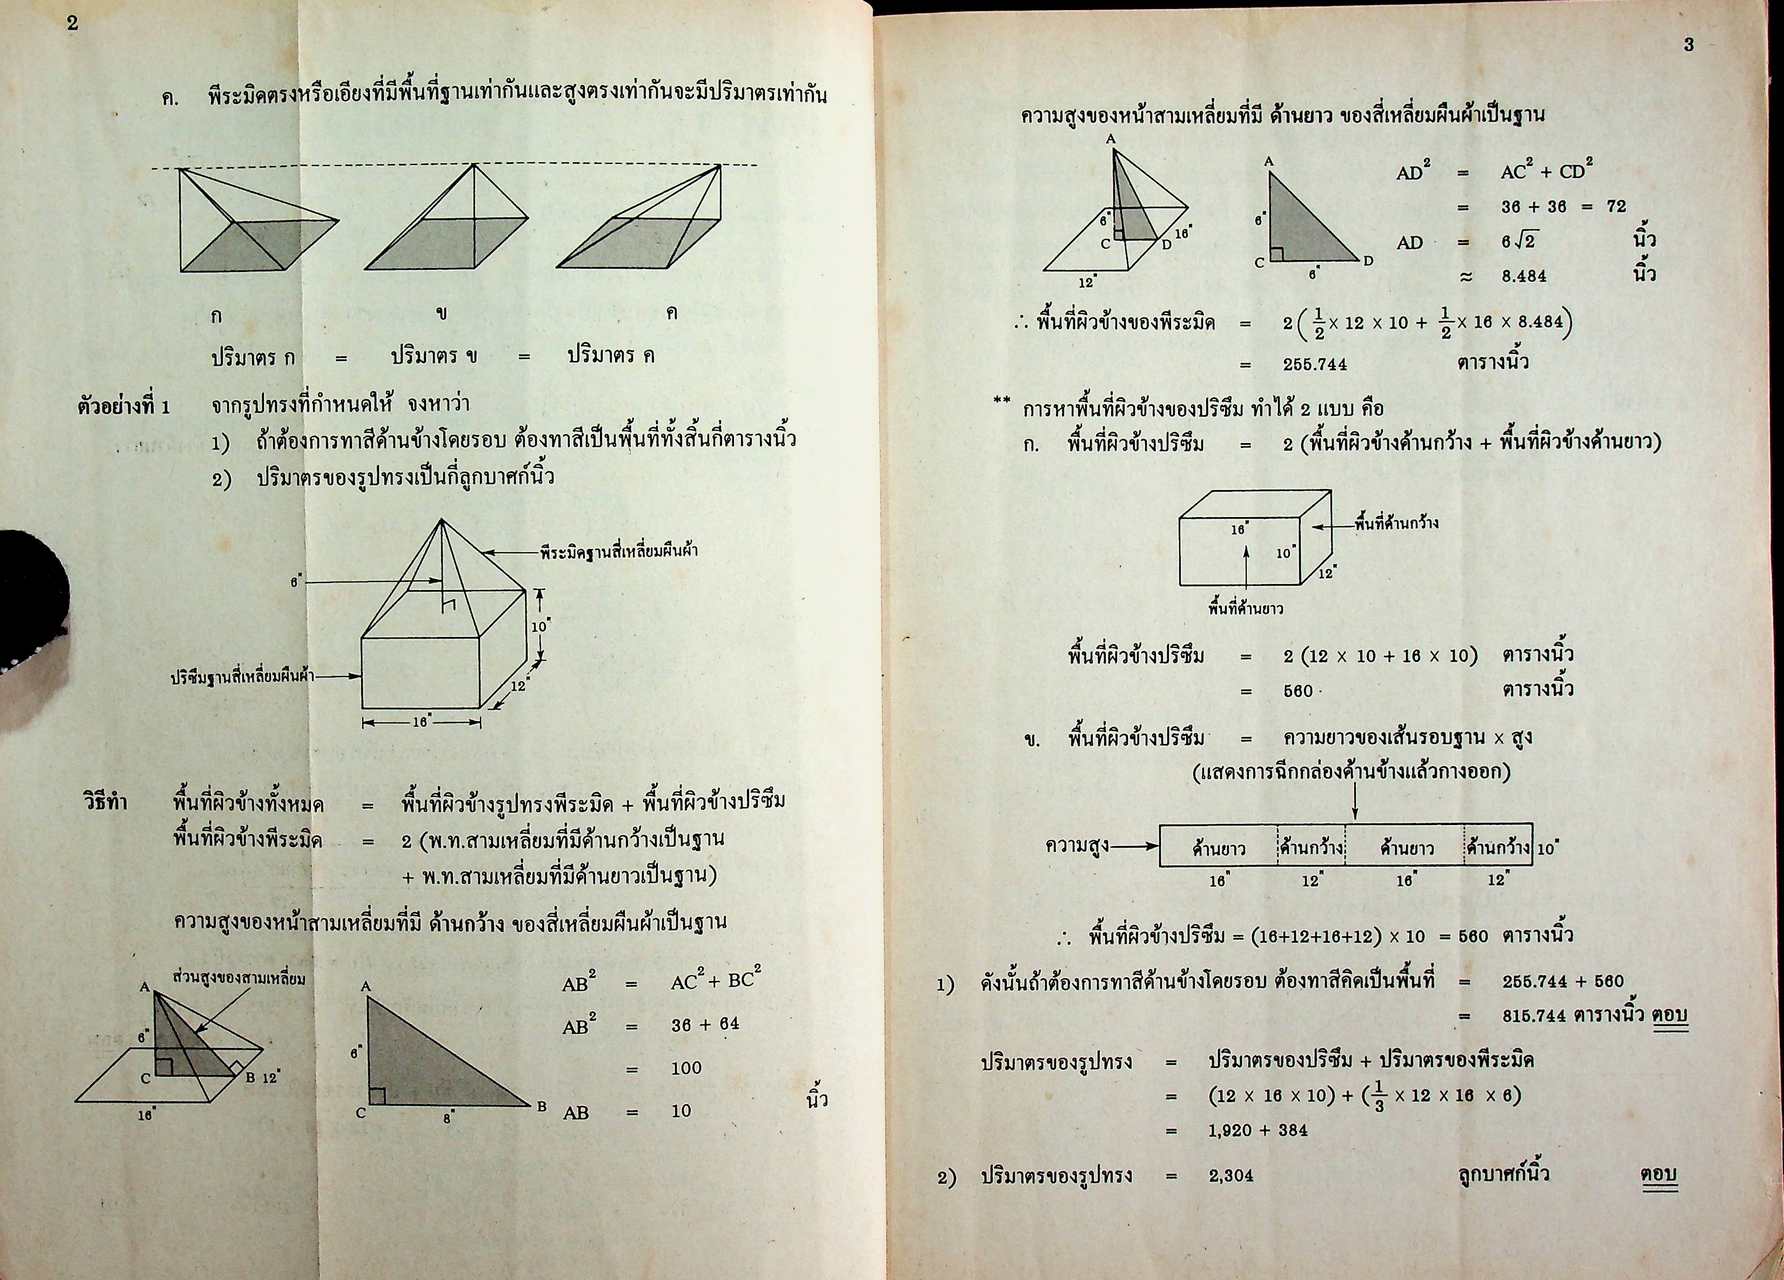 2
ค. พีระมิดตรงหรือเอียงที่มีพื้นที่ฐานเท่ากันและสูงตรงเท่ากันจะมีปริมาตรเท่ากัน
ก ข ค
ปริมาตร ก = ปริมาตร ข = ปริมาตร ค
ตัวอย่างที่ 1 จากรูปทรงที่กำหนดให้ จงหาว่า
1) ถ้าต้องการทาสีด้านข้างโดยรอบ ต้องทาสีเป็นพื้นที่ทั้งสิ้นกี่ตารางนิ้ว
2) ปริมาตรของรูปทรงเป็นกี่ลูกบาศก์นิ้ว
พีระมิดฐานสี่เหลี่ยมผืนผ้า
6"
10"
ปริซึมฐานสี่เหลี่ยมผืนผ้า
12"
16"
วิธีทำ พื้นที่ผิวข้างทั้งหมด = พื้นที่ผิวข้างรูปทรงพีระมิด + พื้นที่ผิวข้างปริซึม
พื้นที่ผิวข้างพีระมิด = 2 (พ.ท.สามเหลี่ยมที่มีด้านกว้างเป็นฐาน
+ พ.ท.สามเหลี่ยมที่มีด้านยาวเป็นฐาน)
ความสูงของหน้าสามเหลี่ยมที่มี ด้านกว้าง ของสี่เหลี่ยมผืนผ้าเป็นฐาน
ส่วนสูงของสามเหลี่ยม
A
6"
C B 12"
16"
A
6"
C 8" B
AB² = AC² + BC²
AB² = 36 + 64
= 100
AB = 10 นิ้ว
3
ความสูงของหน้าสามเหลี่ยมที่มี ด้านยาว ของสี่เหลี่ยมผืนผ้าเป็นฐาน
A
6"
C D 16"
12"
A
6"
C 6" D
AD² = AC² + CD²
= 36 + 36 = 72
AD = 6√2 นิ้ว
≈ 8.484 นิ้ว
∴ พื้นที่ผิวข้างของพีระมิด = 2 (1/2 × 12 × 10 + 1/2 × 16 × 8.484)
= 255.744 ตารางนิ้ว
** การหาพื้นที่ผิวข้างของปริซึม ทำได้ 2 แบบ คือ
ก. พื้นที่ผิวข้างปริซึม = 2 (พื้นที่ผิวข้างด้านกว้าง + พื้นที่ผิวข้างด้านยาว)
16" พื้นที่ด้านกว้าง
10"
12"
พื้นที่ด้านยาว
พื้นที่ผิวข้างปริซึม = 2 (12 × 10 + 16 × 10) ตารางนิ้ว
= 560 ตารางนิ้ว
ข. พื้นที่ผิวข้างปริซึม = ความยาวของเส้นรอบฐาน × สูง
(แสดงการฉีกกล่องด้านข้างแล้วกางออก)
ความสูง ด้านยาว ด้านกว้าง ด้านยาว ด้านกว้าง 10"
16" 12" 16" 12"
∴ พื้นที่ผิวข้างปริซึม = (16+12+16+12) × 10 = 560 ตารางนิ้ว
1) ดังนั้นถ้าต้องการทาสีด้านข้างโดยรอบ ต้องทาสีคิดเป็นพื้นที่ = 255.744 + 560
= 815.744 ตารางนิ้ว ตอบ
ปริมาตรของรูปทรง = ปริมาตรของปริซึม + ปริมาตรของพีระมิด
= (12 × 16 × 10) + (1/3 × 12 × 16 × 6)
= 1,920 + 384
2) ปริมาตรของรูปทรง = 2,304 ลูกบาศก์นิ้ว ตอบ